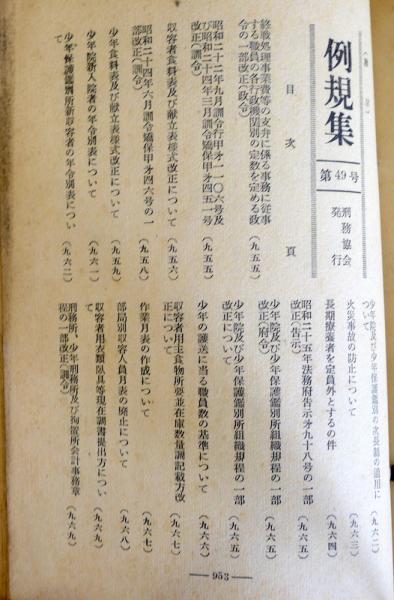 例規集
第49号
刑務協会
発行
目次
頁
終戦処理事業費等の支弁に係る事務に従事
する職員の各行政機関別の定数を定める政
令の一部改正(政令)
(九五五)
昭和二十二年九月訓令行甲才一一〇六号及
び昭和二十四年三月訓令矯保甲才四五一号
改正(訓令)
(九五五)
収容者食料表及び献立表様式改正について
(九五六)
昭和二十四年六月訓令矯保甲才四六号の一
部改正(訓令)
(九五八)
少年食料表及び献立表様式改正について
(九五九)
少年院新入院者の年令別表について
(九六一)
少年保護鑑別所新収容者の年令別表につい
て
(九六二)
少年院及び少年保護鑑別の次長制の適用に
ついて
(九六二)
火災事故の防止について
(九六三)
長期療養者を定員外とするの件
(九六四)
昭和二十五年法務府告示才九十八号の一部
改正(告示)
(九六五)
少年院及び少年保護鑑別所組織規程の一部
改正(府令)
(九六五)
少年院及び少年保護鑑別所組織規程の一部
(九六五)
少年の護送に当る職員数の基準について
(九六六)
収容者用主食物所要並在庫数量調記載方改
正について
(九六七)
作業月表の作成について
(九六七)
部局別収容人員月表の廃止について
(九六八)
収容者用衣類臥具等現在調書提出方につい
て
(九六九)
刑務所、少年刑務所及び拘置所会計事務章
程の一部改正(訓令)
(九六九)
953